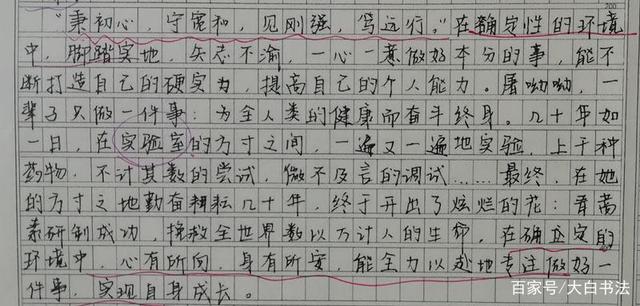 “秉初心，守宽和，见刚强，笃远行。”在确定性的环境
中，脚踏实地，矢志不渝，一心一意做好本分的事，能不
断打造自己的硬实力，提高自己的个人能力。屠呦呦，一
辈子只做一件事：为全人类的健康而奋斗终身。几十年如
一日，在实验室的方寸之间，一遍又一遍地实验，上千种
药物，不计其数的尝试，微不足言的调试……最终，在她
的方寸之地勤奋耕耘几十年，终于开出了炫烂的花：青蒿
素研制成功，拯救全世界数以万计人的生命，在确定的
环境中，心有所向，身有所安，能全力以赴地专注做好一
件事，实现自身成长。
百家号/大白书法
200